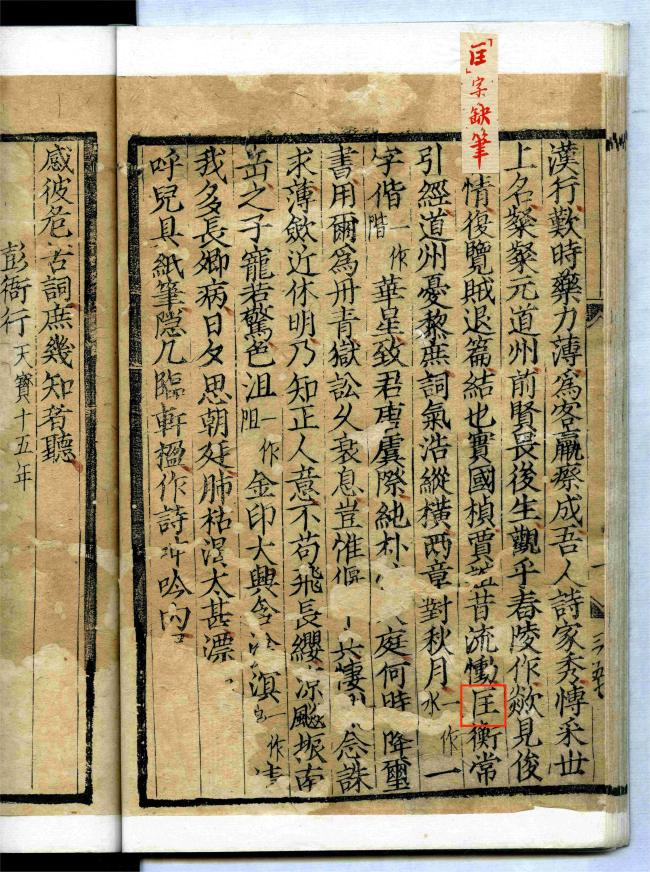 「匡」字缺筆
漢行歎時藥力薄為客羸瘵成吾人詩家秀愽采世
上名粲粲元道州前賢畏後生觀乎舂陵作欻見俊
情復覽賊退篇結也實國楨賈誼昔流慟匡衡常
引經道州憂黎庶詞氣浩縱橫兩章對秋月一作水一
字偕一作階華星致君唐虞際純朴庭何時降璽
書用爾為丹青獄訟久衰息豈惟偃共悽念誅
求薄斂近休明乃知正人意不苟飛長纓涼飈振南
岳之子寵若驚色沮一作阻金印大興含滄溟一作清
我多長卿病日夕思朝廷肺枯渴太甚漂
呼兒具紙筆隱几臨軒楹作詩呻吟內
感彼危苦詞庶幾知者聽
彭衙行天寶十五年